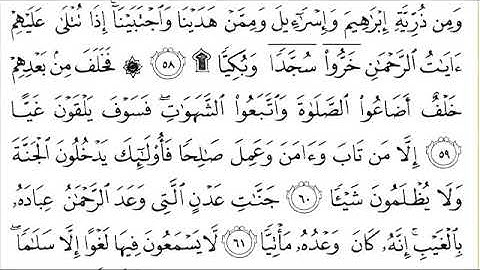 وَمِن ذُرِّيَّةِ إِبْرَٰهِيمَ وَإِسْرَٰٓءِيلَ وَمِمَّنْ هَدَيْنَا وَٱجْتَبَيْنَآ ۚ إِذَا تُتْلَىٰ عَلَيْهِمْ
ءَايَٰتُ ٱلرَّحْمَٰنِ خَرُّوا۟ سُجَّدًا وَبُكِيًّا ۩ ٥٨ ۞ فَخَلَفَ مِنۢ بَعْدِهِمْ
خَلْفٌ أَضَاعُوا۟ ٱلصَّلَوٰةَ وَٱتَّبَعُوا۟ ٱلشَّهَوَٰتِ ۖ فَسَوْفَ يَلْقَوْنَ غَيًّا
٥٩ إِلَّا مَن تَابَ وَءَامَنَ وَعَمِلَ صَٰلِحًا فَأُو۟لَٰٓئِكَ يَدْخُلُونَ ٱلْجَنَّةَ
وَلَا يُظْلَمُونَ شَيْـًٔا ٦٠ جَنَّٰتِ عَدْنٍ ٱلَّتِى وَعَدَ ٱلرَّحْمَٰنُ عِبَادَهُۥ
بِٱلْغَيْبِ ۚ إِنَّهُۥ كَانَ وَعْدُهُۥ مَأْتِيًّا ٦١ لَّا يَسْمَعُونَ فِيهَا لَغْوًا إِلَّا سَلَٰمًا ۖ